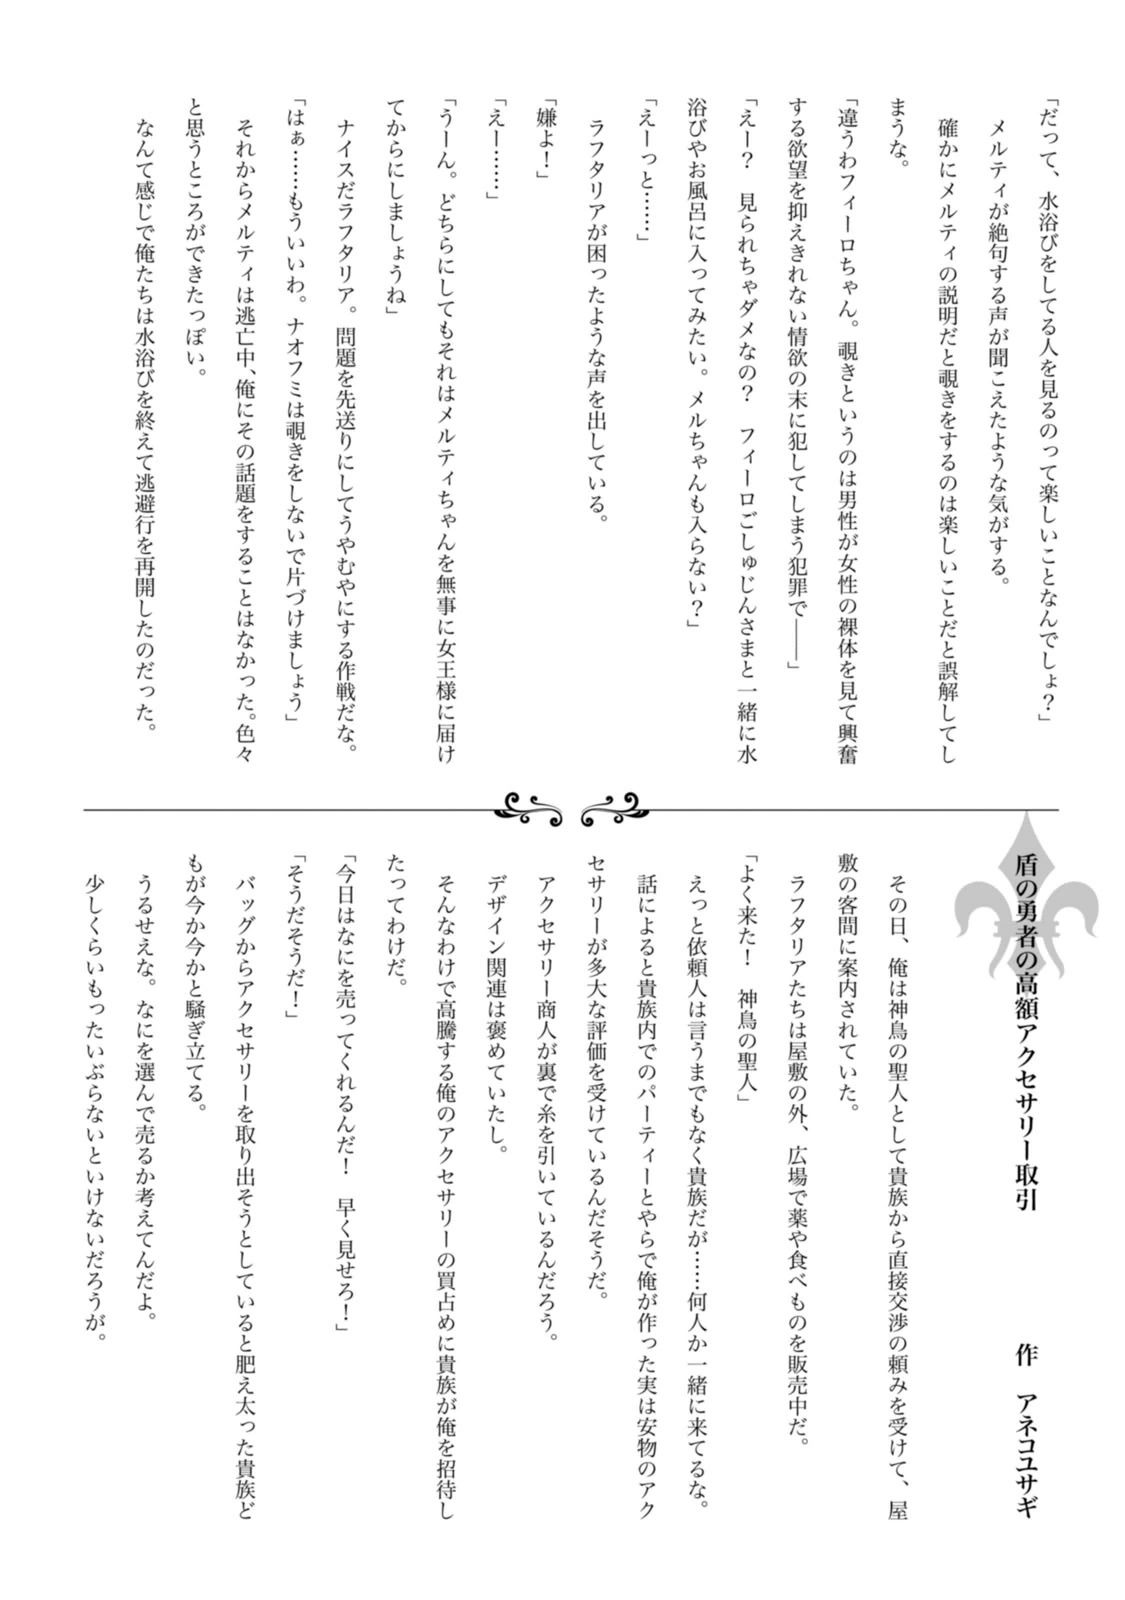 「だって、水浴びをしてる人を見るのって楽しいことなんでしょ？」
メルティが絶句する声が聞こえたような気がする。
確かにメルティの説明だと覗きをするのは楽しいことだと誤解してし
まうな。
「違うわフィーロちゃん。覗きというのは男性が女性の裸体を見て興奮
する欲望を抑えきれない情欲の末に犯してしまう犯罪で――」
「えー？　見られちゃダメなの？　フィーロごしゅじんさまと一緒に水
浴びやお風呂に入ってみたい。メルちゃんも入らない？」
「えーっと……」
ラフタリアが困ったような声を出している。
「嫌よ！」
「えー……」
「うーん。どちらにしてもそれはメルティちゃんを無事に女王様に届け
てからにしましょうね」
ナイスだラフタリア。問題を先送りにしてうやむやにする作戦だな。
「はぁ……もういいわ。ナオフミは覗きをしないで片づけましょう」
それからメルティは逃亡中、俺にその話題をすることはなかった。色々
と思うところができたっぽい。
なんて感じで俺たちは水浴びを終えて逃避行を再開したのだった。
盾の勇者の高額アクセサリー取引　　　作　アネコユサギ
その日、俺は神鳥の聖人として貴族から直接交渉の頼みを受けて、屋
敷の客間に案内されていた。
ラフタリアたちは屋敷の外、広場で薬や食べものを販売中だ。
「よく来た！　神鳥の聖人」
えっと依頼人は言うまでもなく貴族だが……何人か一緒に来てるな。
話によると貴族内でのパーティーとやらで俺が作った実は安物のアク
セサリーが多大な評価を受けているんだそうだ。
アクセサリー商人が裏で糸を引いているんだろう。
デザイン関連は褒めていたし。
そんなわけで高騰する俺のアクセサリーの買占めに貴族が俺を招待し
たってわけだ。
「今日はなにを売ってくれるんだ！　早く見せろ！」
「そうだそうだ！」
バッグからアクセサリーを取り出そうとしていると肥え太った貴族ど
もが今か今かと騒ぎ立てる。
うるせえな。なにを選んで売るか考えてんだよ。
少しくらいもったいぶらないといけないだろうが。